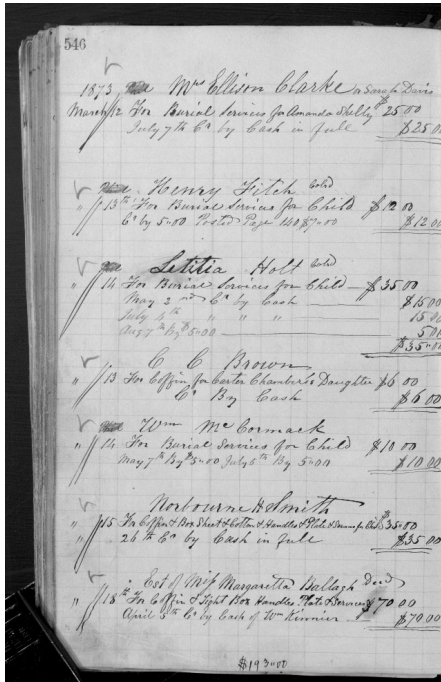 546
1873 Mrs Ellison Clarke or Sarah Davis
March 12 For Burial Services for Amanda Shelby $25.00
July 7th Cr by Cash in full $25.00
Henry Fitch Cold
" 13th For Burial Services for Child $12 00
Cr by 5.00 Posted Page 140 $7.00 $12.00
Letitia Holt Cold
" 14 For Burial Services for Child $35.00
May 2nd Cr by Cash $15 00
July 4th " " " 15 00
Aug 7th By $5.00 5 00
$35.00
C C Brown
" 13 For Coffin for Carter Chamber's Daughter $6 00
Cr By Cash $6 00
Wm McCormack
" 14 For Burial Services for Child $10 00
May 7th By $5.00 July 5th By 5.00 $10 00
Norbourne H Smith
" 15 For Coffin & Box Sheet & Cotton & Handles & Plate & $35.00
26th Cr by Cash in full $35.00
Est of Miss Margaretta Ballagh Decd
" 18th For Coffin & Tight Box Handles Plate & Services $70 00
April 5th Cr by Cash of Wm Kinnier $70.00
$193.00